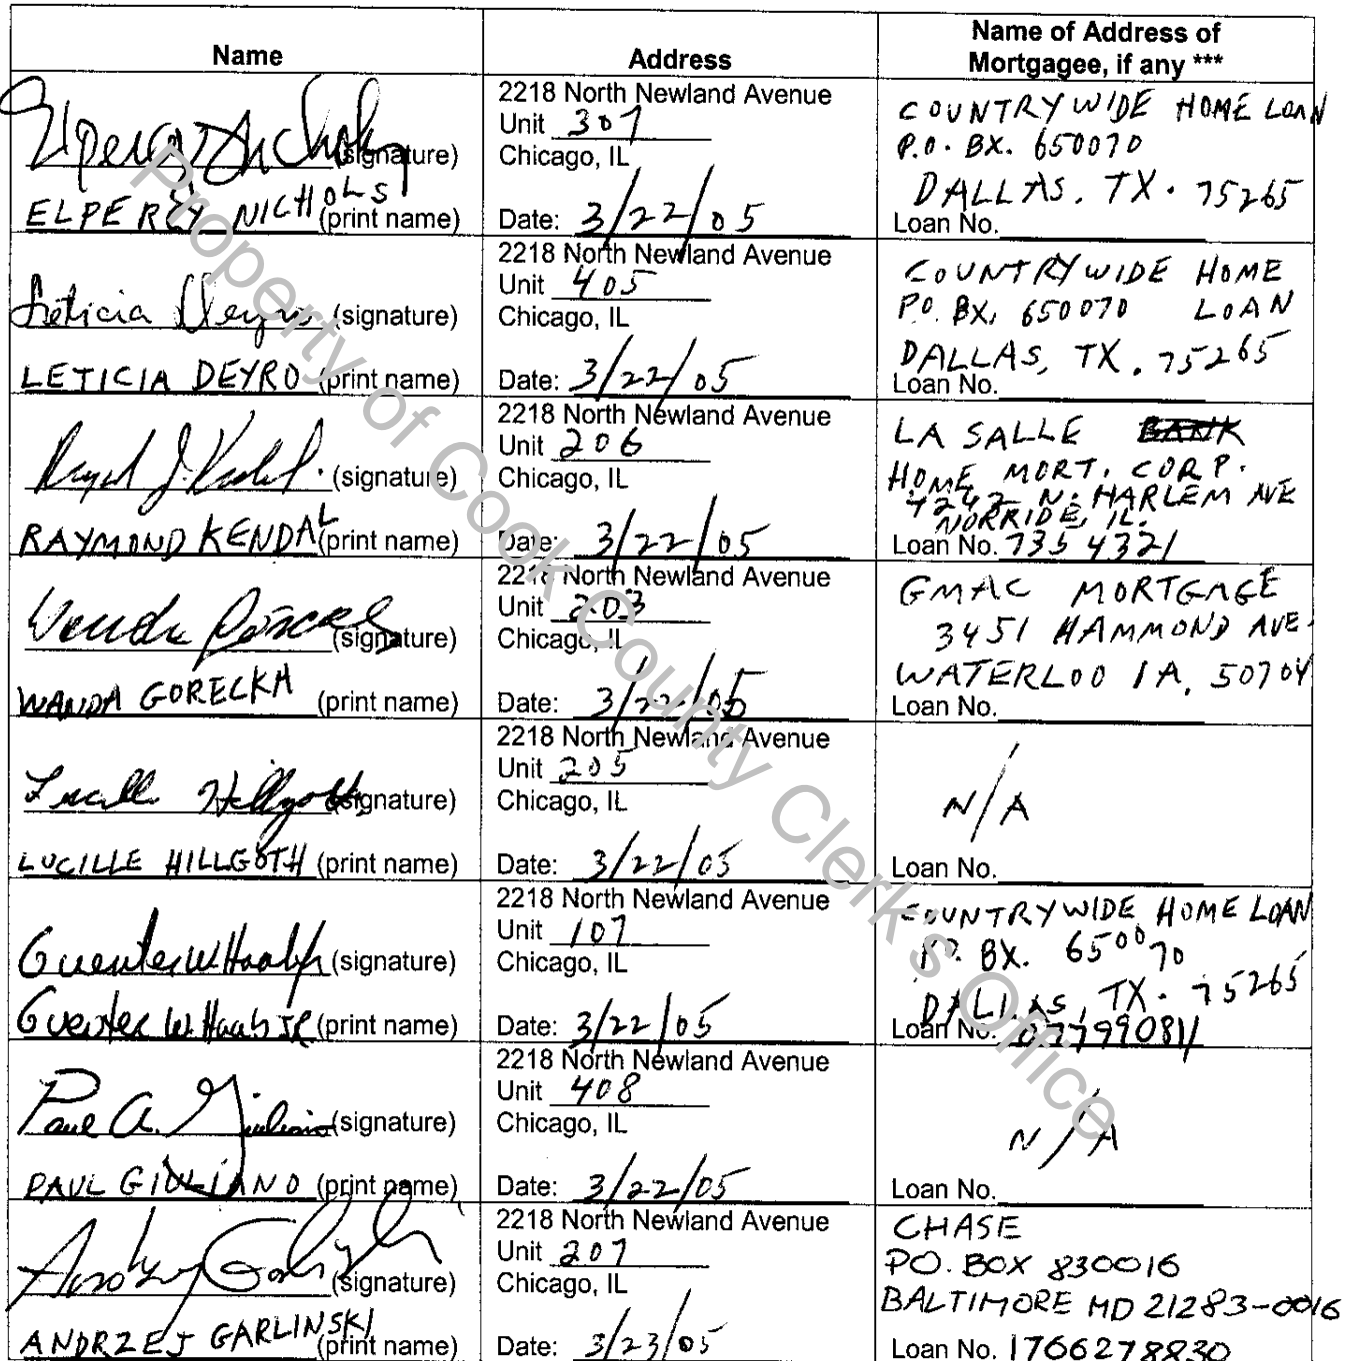 Name
Address
Name of Address of
Mortgagee, if any ***
(signature)
ELPEREY NICHOLS (print name)
2218 North Newland Avenue
Unit 307
Chicago, IL
Date: 3/22/05
COUNTRYWIDE HOME LOAN
P.O. BX. 650070
DALLAS, TX. 75265
Loan No.
Leticia Deyro (signature)
LETICIA DEYRO (print name)
2218 North Newland Avenue
Unit 405
Chicago, IL
Date: 3/22/05
COUNTRYWIDE HOME
P.O. BX, 650070 LOAN
DALLAS, TX. 75265
Loan No.
(signature)
RAYMOND KENDAL (print name)
2218 North Newland Avenue
Unit 206
Chicago, IL
Date: 3/22/05
LA SALLE BANK
HOME MORT. CORP.
4242 N. HARLEM AVE
NORRIDE, IL.
Loan No. 7354321
(signature)
WANDA GORECKA (print name)
2218 North Newland Avenue
Unit 203
Chicago, IL
Date: 3/22/05
GMAC MORTGAGE
3451 HAMMOND AVE.
WATERLOO IA, 50704
Loan No.
Lucille Hillgoth (signature)
LUCILLE HILLGOTH (print name)
2218 North Newland Avenue
Unit 205
Chicago, IL
Date: 3/22/05
N/A
Loan No.
Guenter W Haab Jr (signature)
Guenter W. Haab JR (print name)
2218 North Newland Avenue
Unit 107
Chicago, IL
Date: 3/22/05
COUNTRYWIDE HOME LOAN
P. BX. 650070
DALLAS, TX. 75265
Loan No. 077990811
Paul A. Giuliano (signature)
PAUL GIULIANO (print name)
2218 North Newland Avenue
Unit 408
Chicago, IL
Date: 3/22/05
N/A
Loan No.
(signature)
ANDRZEJ GARLINSKI (print name)
2218 North Newland Avenue
Unit 207
Chicago, IL
Date: 3/23/05
CHASE
PO. BOX 830016
BALTIMORE MD 21283-0016
Loan No. 1766278830
Property of Cook County Clerk's Office